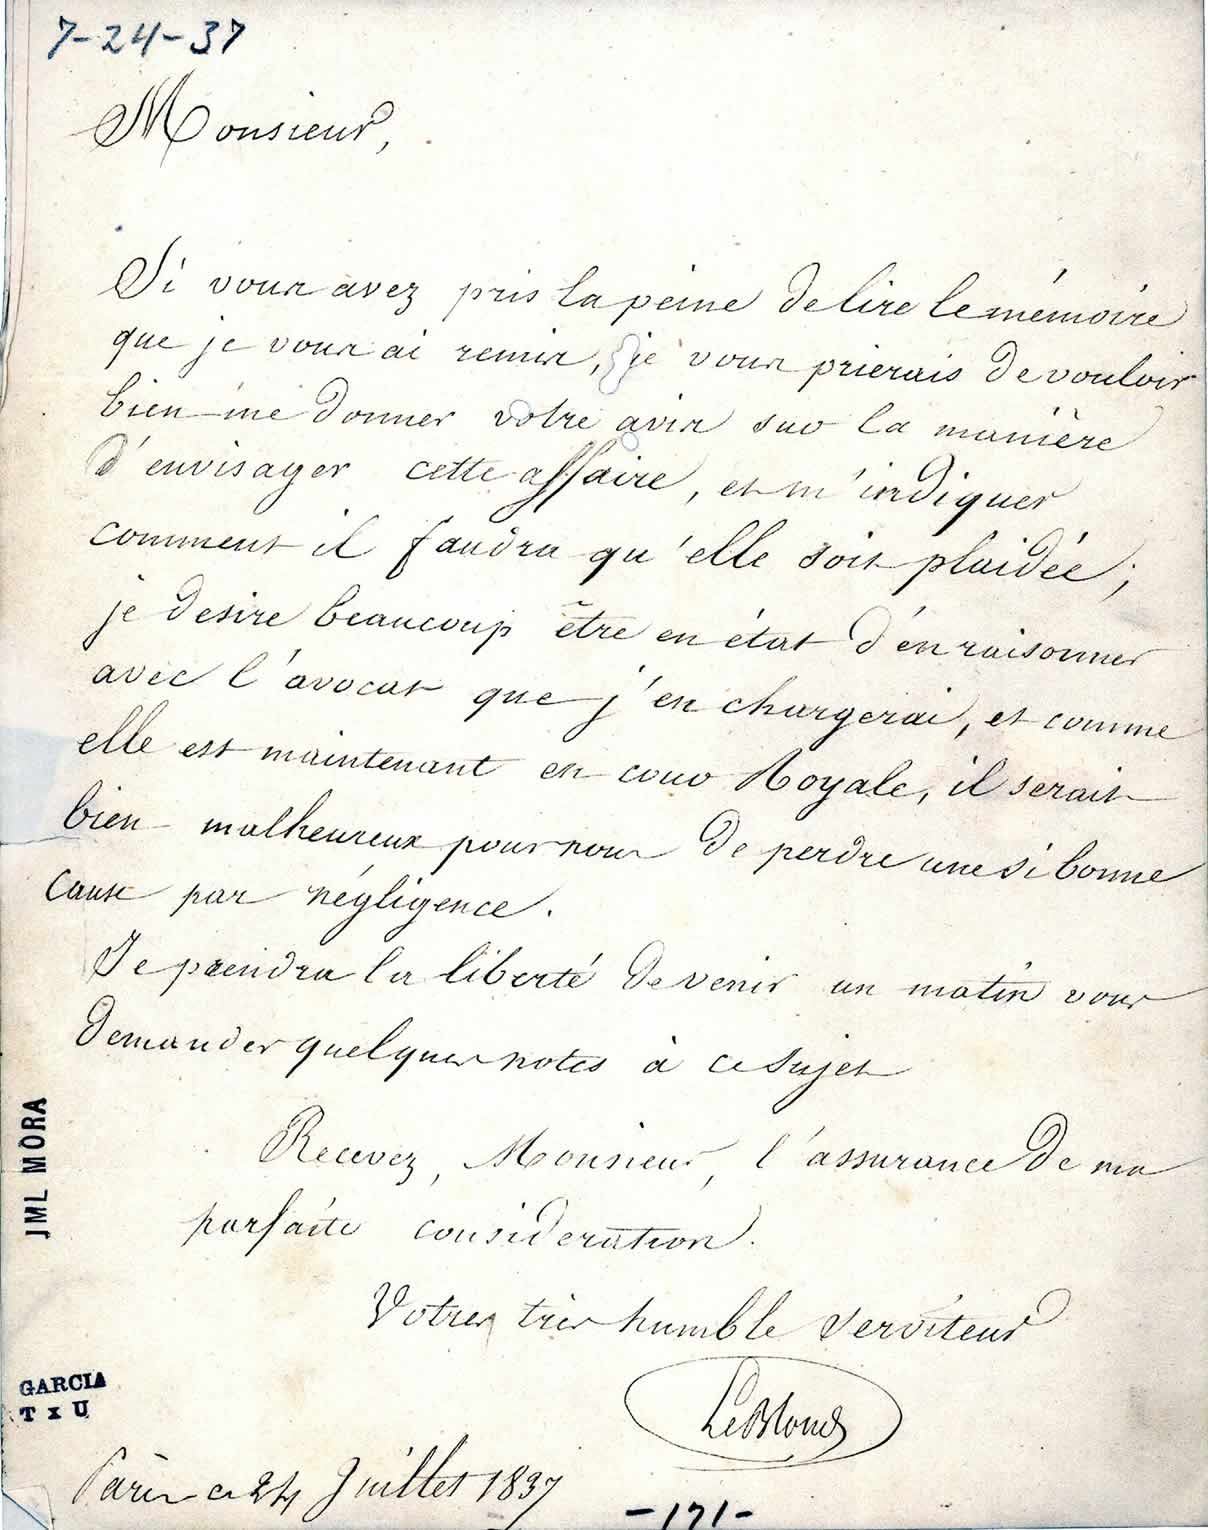 7-24-37
Monsieur,
Si vous avez pris la peine de lire le mémoire
que je vous ai remis, je vous prierais de vouloir
bien me donner votre avis sur la manière
d'envisager cette affaire, et m'indiquer
comment il faudra qu'elle soit plaidée;
je desire beaucoup être en état d'en raisonner
avec l'avocat que j'en chargerai, et comme
elle est maintenant en cour Royale, il serait
bien malheureux pour nous de perdre une si bonne
cause par négligence.
Je prendra la liberté de venir un matin vous
demander quelques notes à ce sujet
Recevez, Monsieur, l'assurance de ma
parfaite consideration.
Votre très humble Serviteur
LeBlond
JML MORA
GARCIA
T x U
Paris ce 24 Juillet 1837
-171-